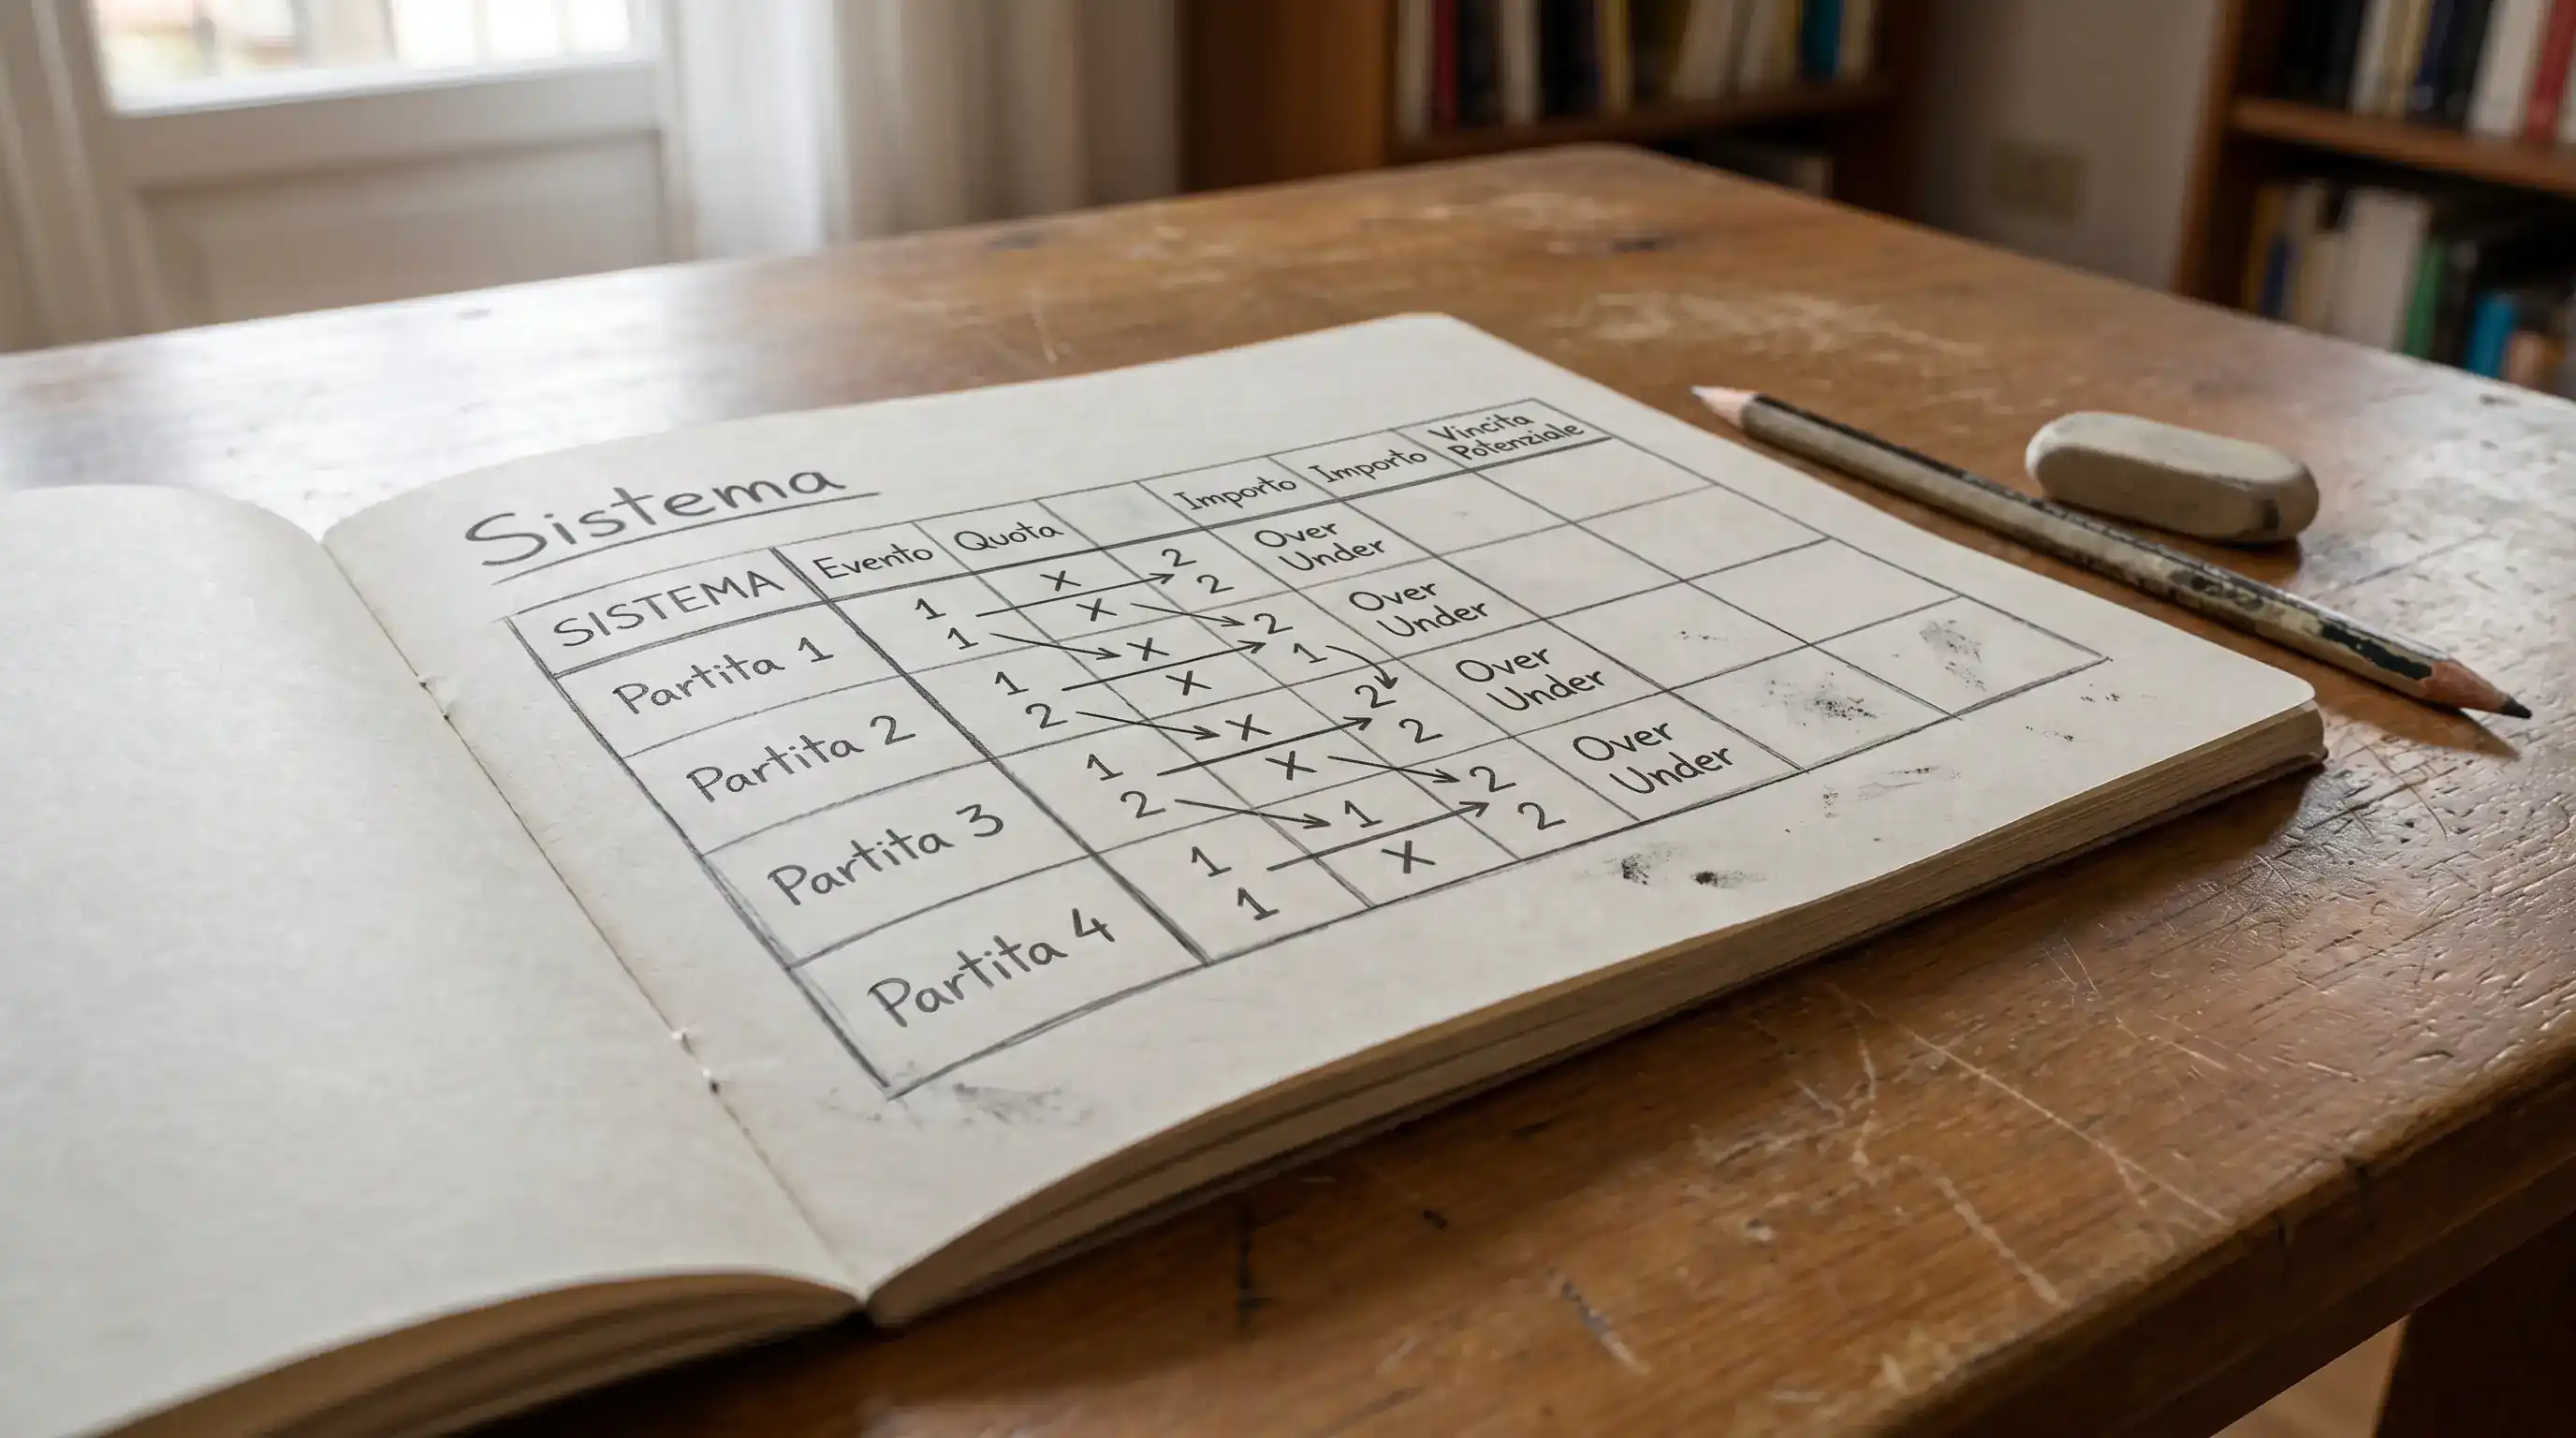 Sistema
SISTEMA Evento Quota Importo Importo Vincita Potenziale
Partita 1 1 X 2 Over
1 X 2 Under
Partita 2 1 X 2 Over
2 X 1 Under
Partita 3 1 X 2 Over
2 X 2 Under
Partita 4 1 1 2 Over
1 X 2 Under